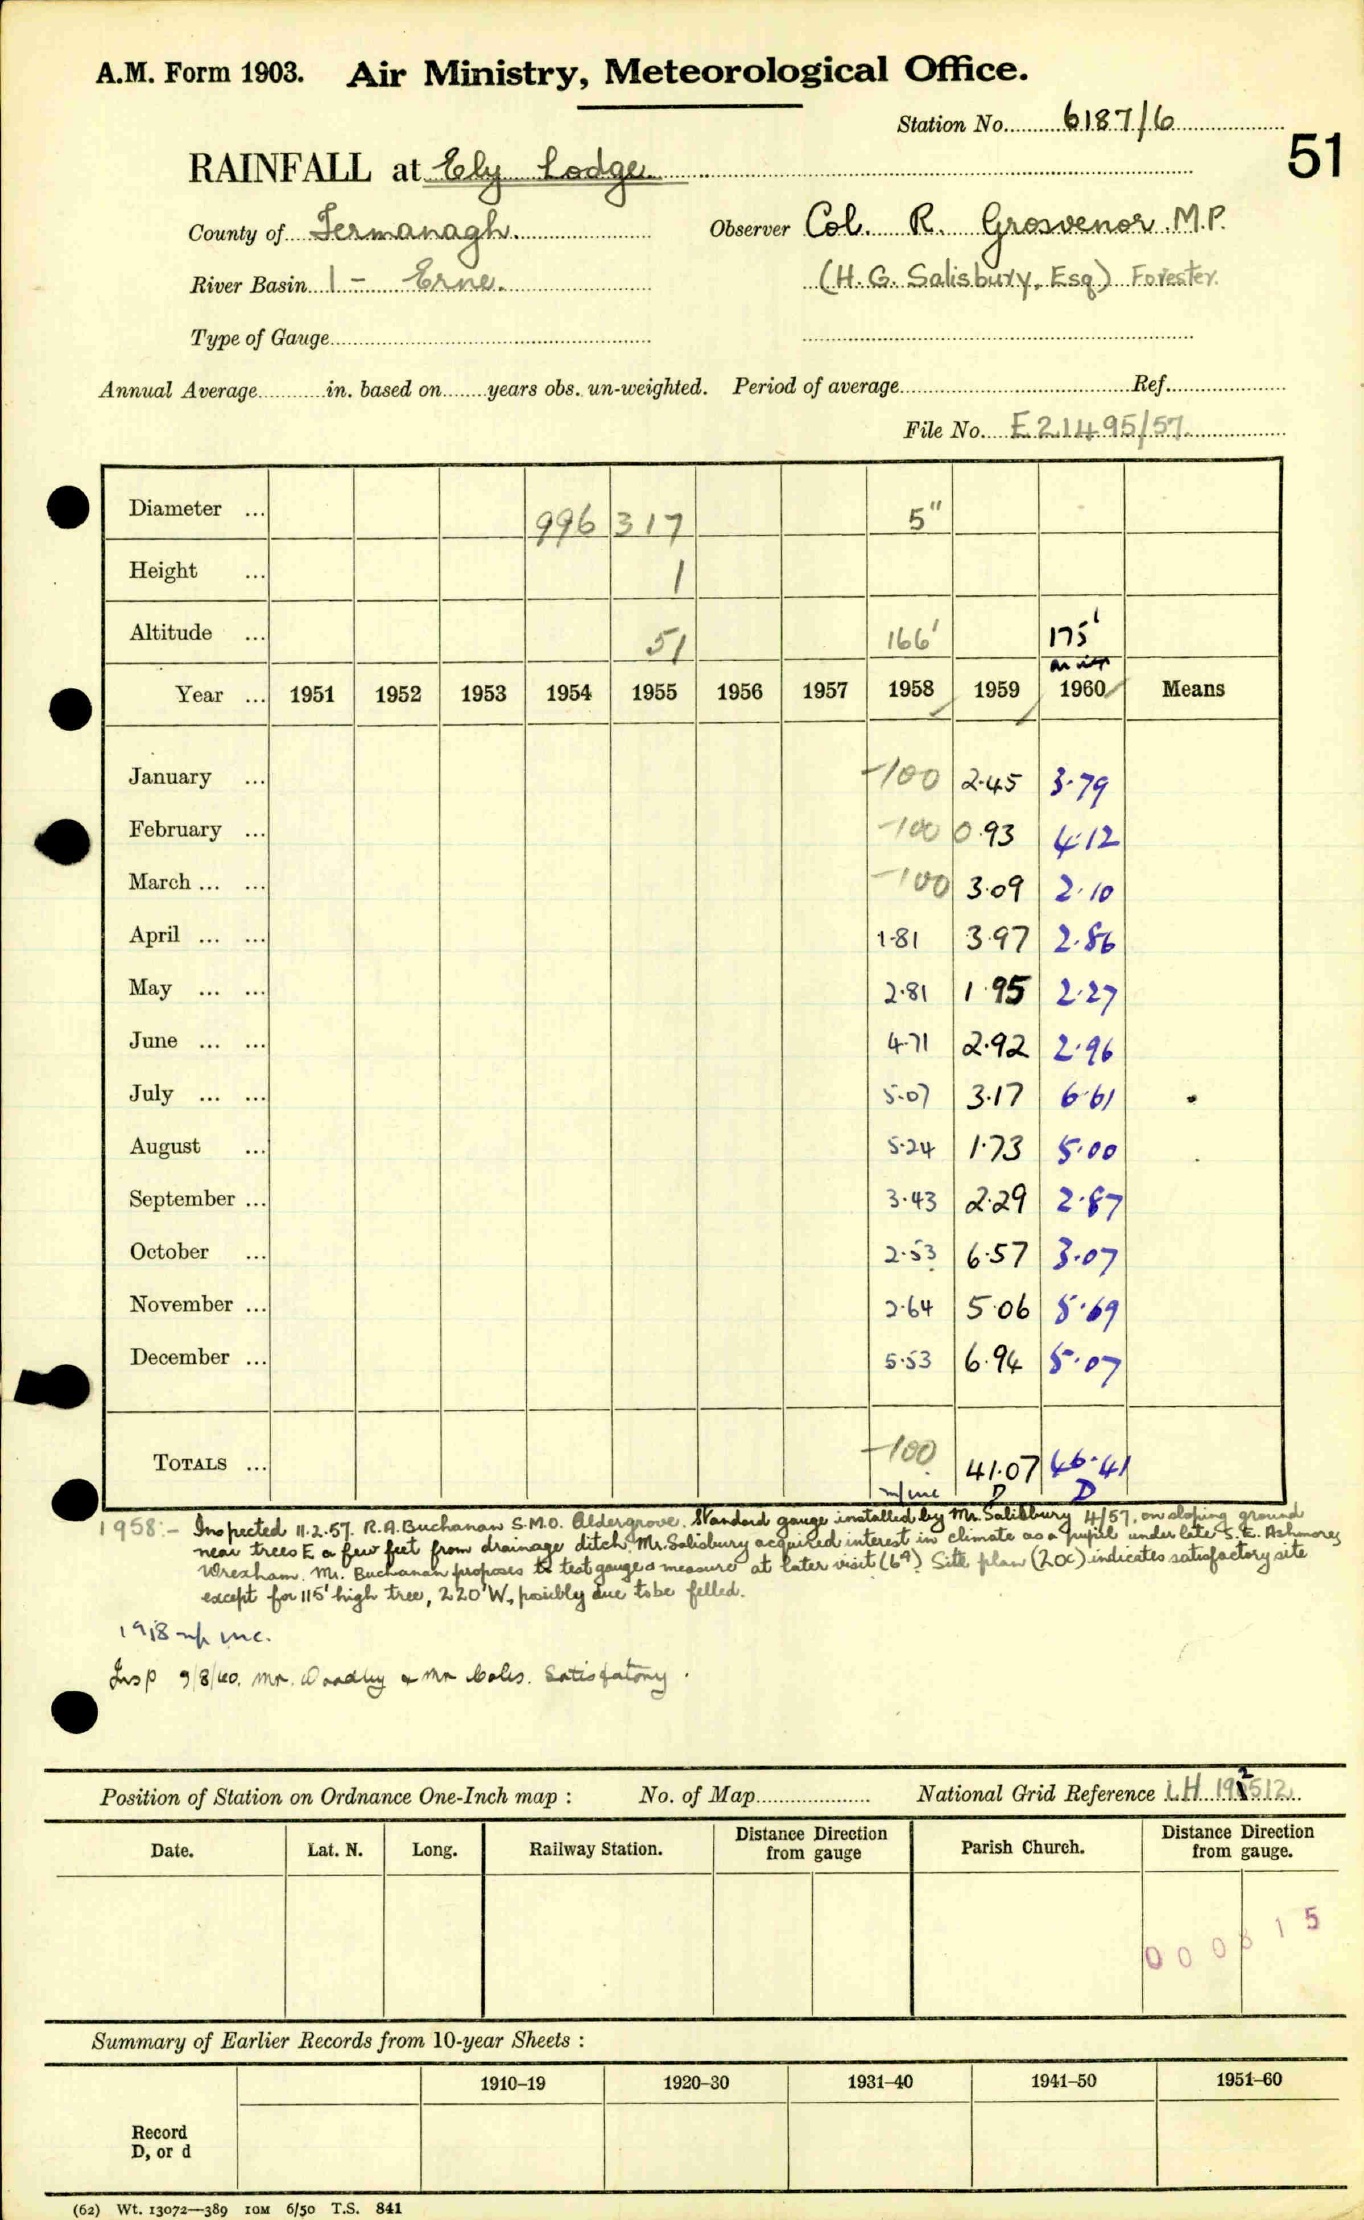 A.M. Form 1903. Air Ministry, Meteorological Office.
Station No. 6187/6
51
RAINFALL at Ely Lodge
County of Fermanagh. Observer Col. R. Grosvenor M.P.
River Basin 1 - Erne. (H.G. Salisbury, Esq) Forester.
Type of Gauge
Annual Average in. based on years obs. un-weighted. Period of average Ref.
File No. E21495/57
Diameter ... 996 317 5"
Height ... 1
Altitude ... 51 166' 175'
Year ... 1951 1952 1953 1954 1955 1956 1957 1958 1959 1960 Means
January ... -100 2.45 3.79
February ... -100 0.93 4.12
March ... ... -100 3.09 2.10
April ... ... 1.81 3.97 2.86
May ... ... 2.81 1.95 2.27
June ... ... 4.71 2.92 2.96
July ... ... 5.07 3.17 6.61
August ... 5.24 1.73 5.00
September ... 3.43 2.29 2.87
October ... 2.53 6.57 3.07
November ... 2.64 5.06 5.69
December ... 5.53 6.94 5.07
TOTALS ... -100 41.07 46.41
D D
1958:- Inspected 11.2.57. R.A. Buchanan S.M.O. Aldergrove. Standard gauge installed by Mr. Salisbury 4/57, on sloping ground
near trees E a few feet from drainage ditch. Mr. Salisbury acquired interest in climate as a pupil under late S.E. Ashmore,
Wrexham. Mr. Buchanan proposes to test gauge & measure at later visit. Site plan (20c) indicates satisfactory site
except for 115' high tree, 220' W., possibly due to be felled.
inc.
Insp 9/8/60. Mr. & Mr Coles. Satisfactory.
Position of Station on Ordnance One-Inch map : No. of Map National Grid Reference
Date. Lat. N. Long. Railway Station. Distance from gauge Direction Parish Church. Distance from gauge. Direction
000615
Summary of Earlier Records from 10-year Sheets :
1910-19 1920-30 1931-40 1941-50 1951-60
Record
D, or d
(62) Wt. 13072—389 10M 6/50 T.S. 841